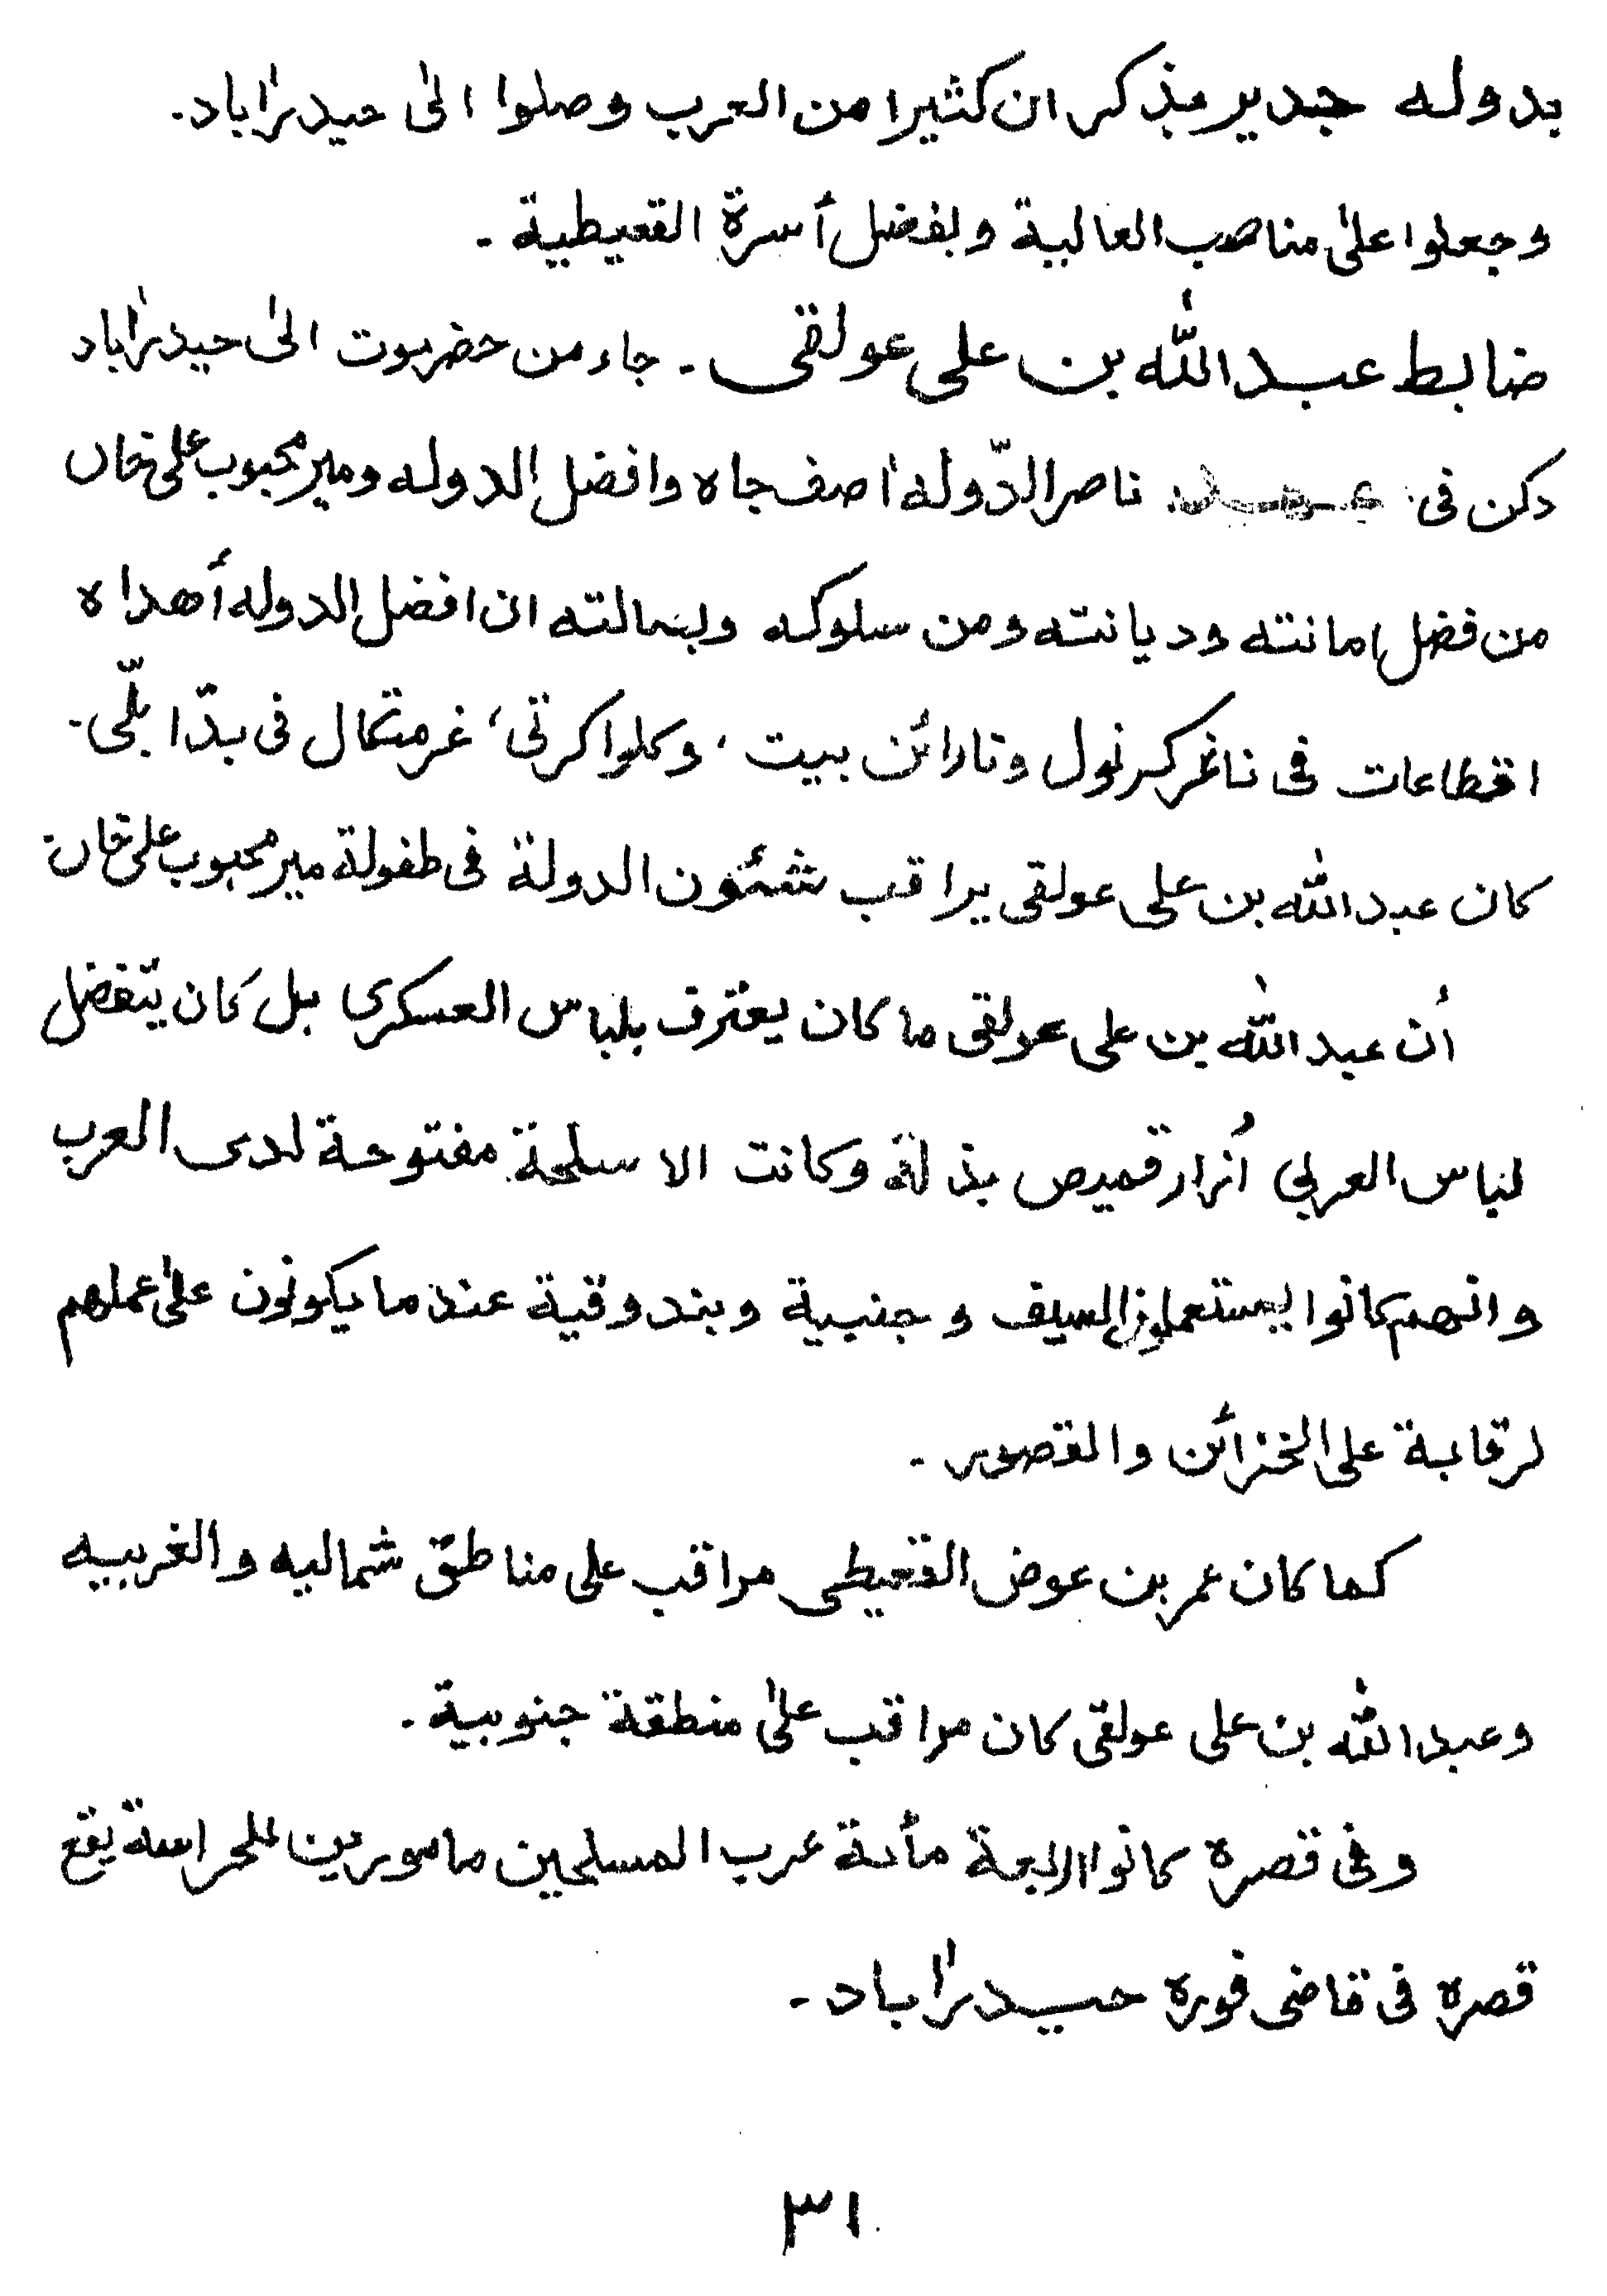 بدوله جدير بذكر ان كثيرا من العرب وصلوا الىٰ حيدرٰاباد۔
وجعلوا علىٰ مناصب العالية وبفضل أسرة القعيطية ۔
ضابط عبد اللّٰه بن على عولقى ۔ جاء من حضرموت الىٰ حيدرٰاباد
دكن فى عهد ناصر الدّوله اٰصف جاه وافضل الدوله ومير محبوب على خان
من فضل امانته وديانته ومن سلوكه وبسالته ان افضل الدوله أهداه
اقطاعات فى ناغر كرنول ونارائن بيت ، وكلواكرتى ، غرمتكال فى بدّا بلّى۔
كان عبد اللّٰه بن على عولقى يراقب شئون الدولة فى طفولة مير محبوب على خان
أن عبد اللّٰه بن على عولقى ما كان يعترف بلباس العسكرى بل كان يتفضل
لباس العربى أزار قميص بذلة وكانت الاسلحة مفتوحة لدى العرب
وانهم كانوا يستعملون السيف و جنبية وبندوقية عند ما يكونون علىٰ عملهم
لرقابة على الخزائن والقصور ۔
كما كان عمر بن عوض القعيطى مراقب على مناطق شماليه والغربيه
وعبد اللّٰه بن على عولقى كان مراقب علىٰ منطقة جنوبية ۔
وفى قصره كانوا اربعة مأئة عرب المسلحين مامورين للحراسة يقع
قصره فى قاضى فوره حيدرٰاباد ۔
٣١